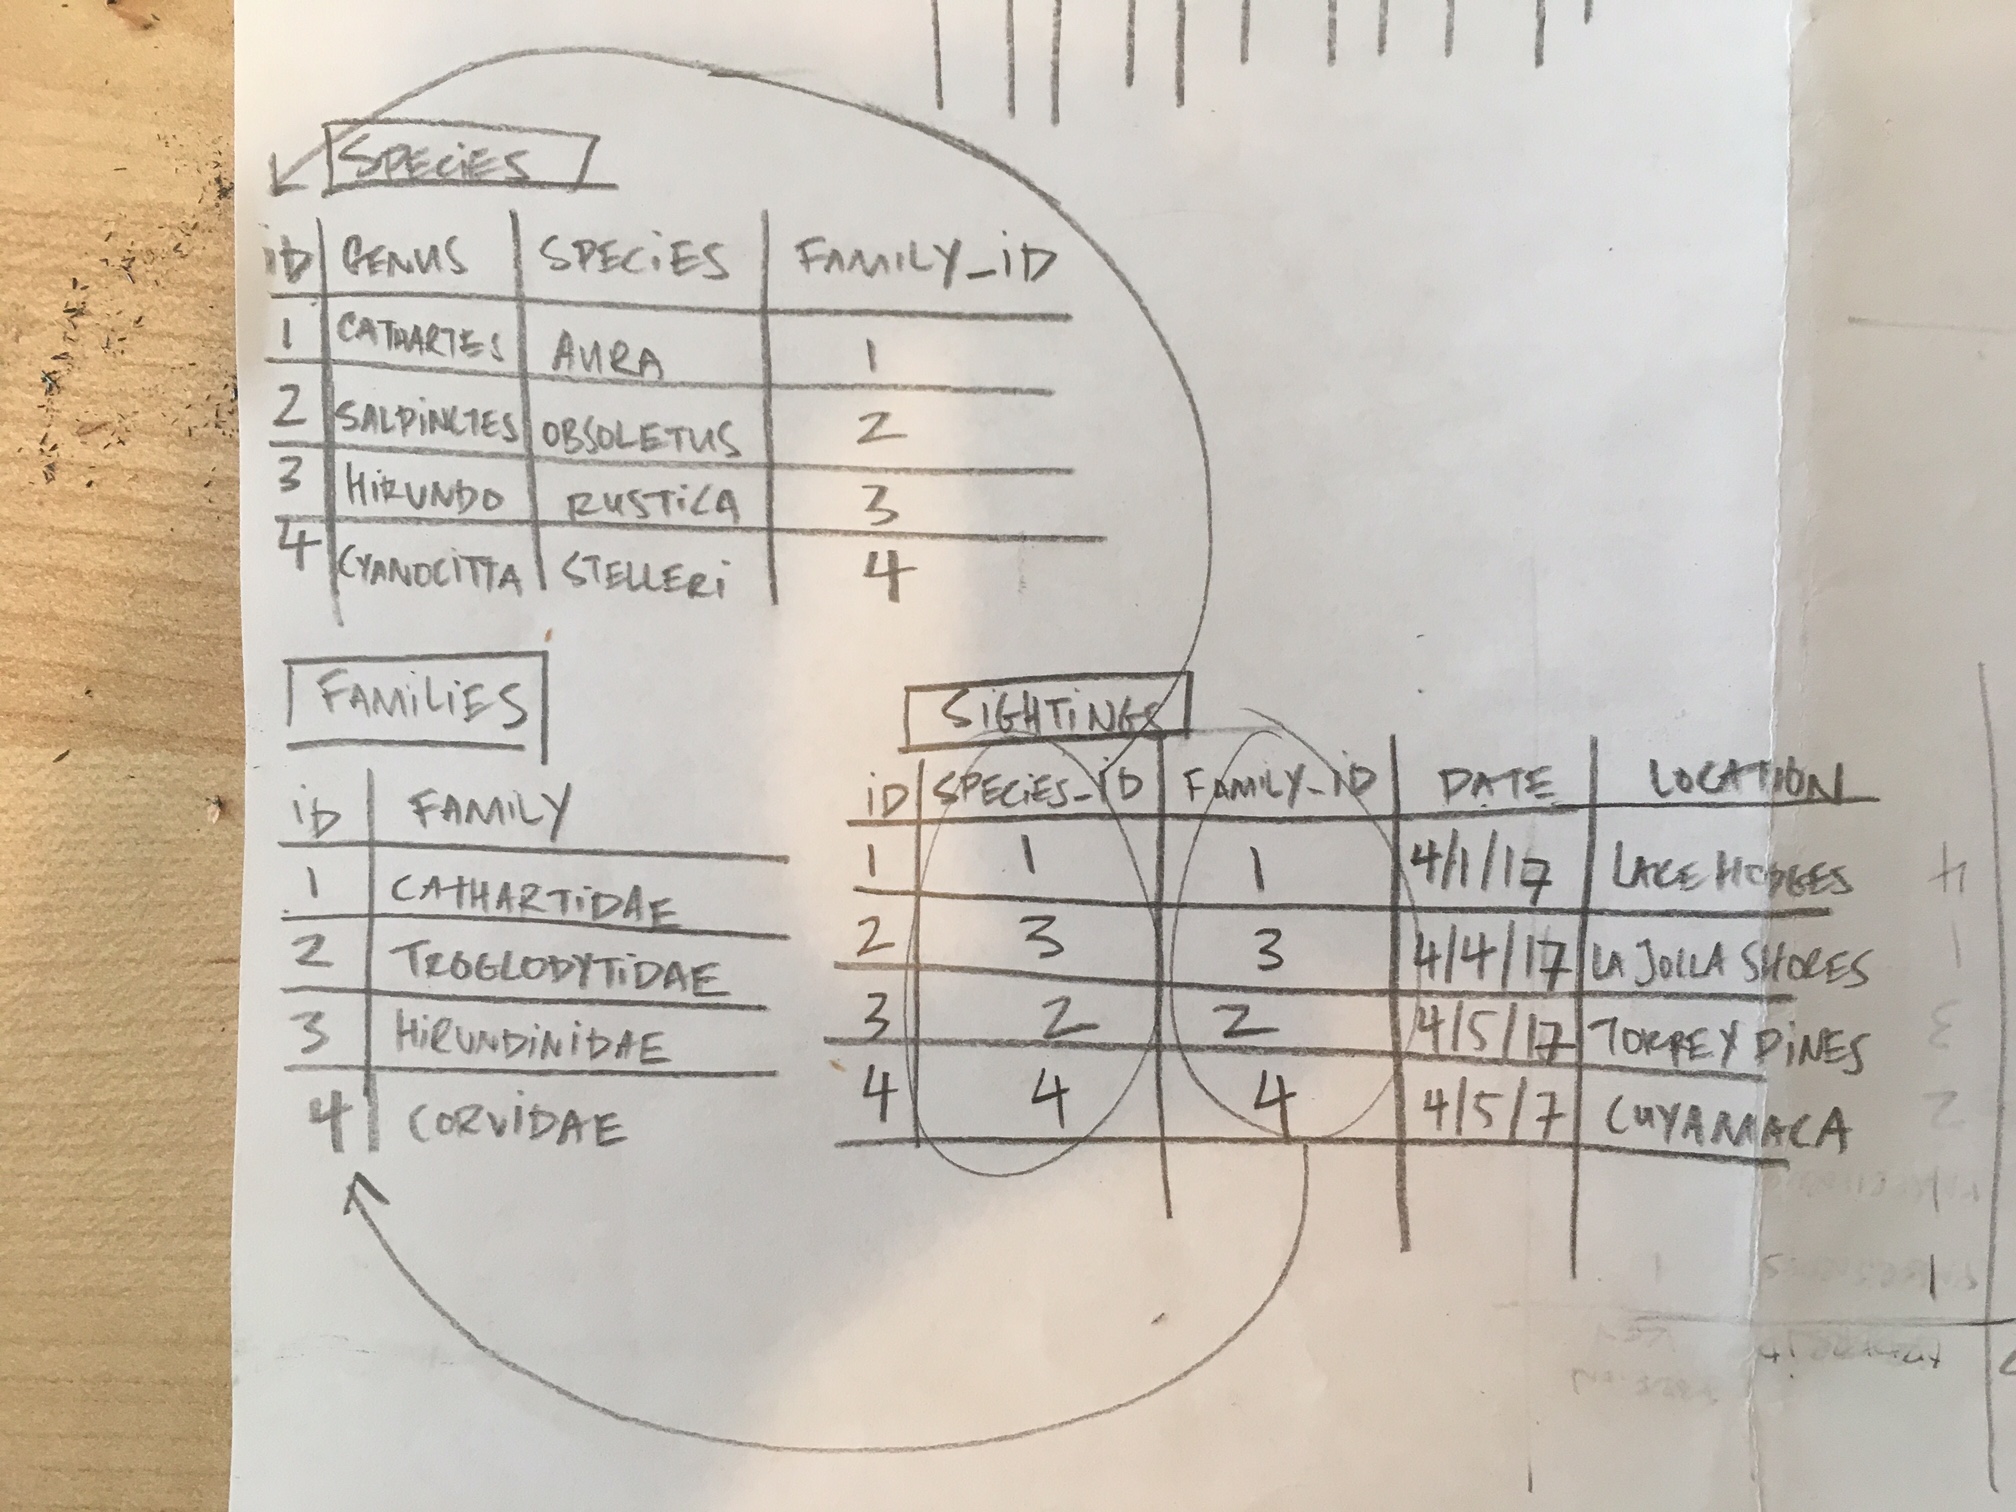 SPECIES
iD GENUS SPECIES FAMILY_iD
1 CATHARTES AURA 1
2 SALPINCTES OBSOLETUS 2
3 HIRUNDO RUSTiCA 3
4 CYANOCITTA STELLERi 4
FAMiLiES
iD FAMILY
1 CATHARTiDAE
2 TROGLODYTiDAE
3 HiRUNDiNiDAE
4 CORViDAE
SiGHTiNGS
iD SPECiES_iD FAMiLY_iD DATE LOCATION
1 1 1 4/1/17 LAKE HODGES
2 3 3 4/4/17 LA JOLLA SHORES
3 2 2 4/5/17 TORREY PiNES
4 4 4 4/5/7 CUYAMACA